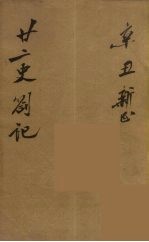 辛丑新正
廿二史劄記